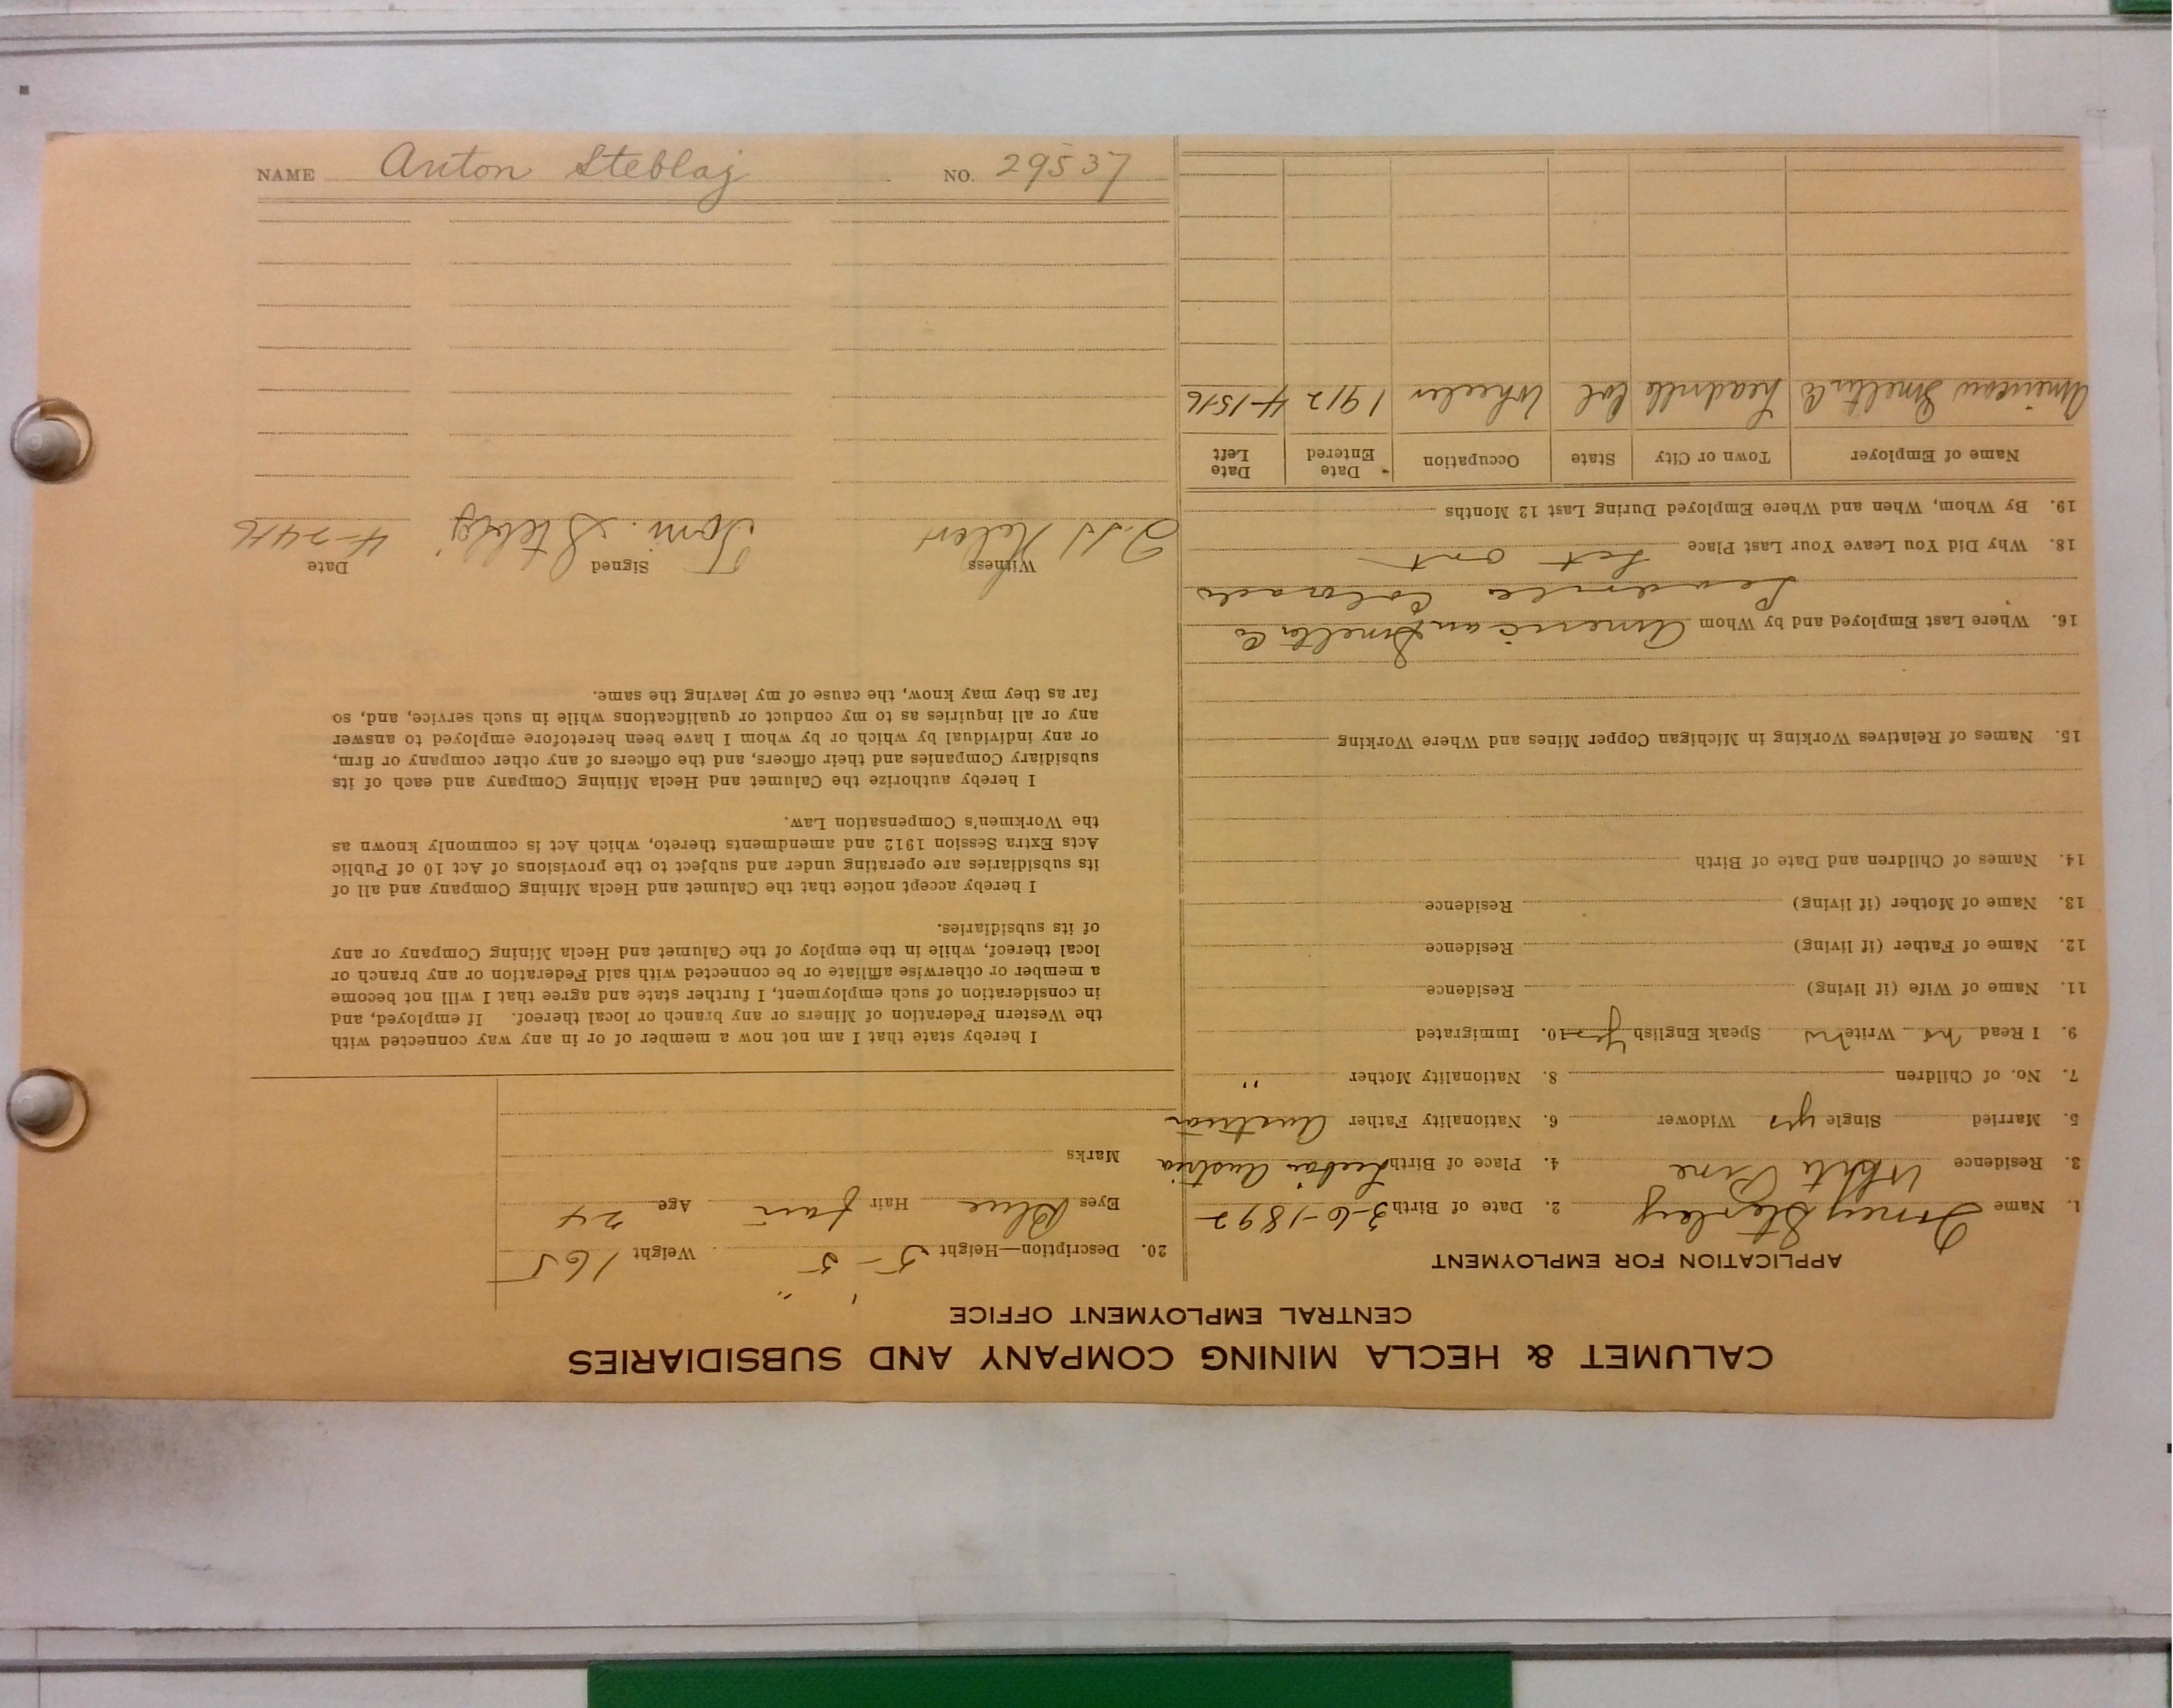 NAME Anton Steblaj NO. 29537
CALUMET & HECLA MINING COMPANY AND SUBSIDIARIES
CENTRAL EMPLOYMENT OFFICE
APPLICATION FOR EMPLOYMENT
1. Name 2. Date of Birth 3-6-1892
3. Residence White Pine 4. Place of Birth Austria
5. Married Single yes Widower 6. Nationality Father Austrian
7. No. of Children 8. Nationality Mother "
9. I Read no Write no Speak English yes 10. Immigrated
11. Name of Wife (if living) Residence
12. Name of Father (if living) Residence
13. Name of Mother (if living) Residence
14. Names of Children and Date of Birth
15. Names of Relatives Working in Michigan Copper Mines and Where Working
16. Where Last Employed and by Whom American Smelter Co
Leadville Colorado
18. Why Did You Leave Your Last Place Let out
19. By Whom, When and Where Employed During Last 12 Months
Name of Employer Town or City State Occupation Date Entered Date Left
American Smelter Co Leadville Col Wheeler 1912 4-15-16
20. Description—Height 5'-5" Weight 165
Eyes Blue Hair fair Age 24
Marks
I hereby state that I am not now a member of or in any way connected with
the Western Federation of Miners or any branch or local thereof. If employed, and
in consideration of such employment, I further state and agree that I will not become
a member or otherwise affiliate or be connected with said Federation or any branch or
local thereof, while in the employ of the Calumet and Hecla Mining Company or any
of its subsidiaries.
I hereby accept notice that the Calumet and Hecla Mining Company and all of
its subsidiaries are operating under and subject to the provisions of Act 10 of Public
Acts Extra Session 1912 and amendments thereto, which Act is commonly known as
the Workmen's Compensation Law.
I hereby authorize the Calumet and Hecla Mining Company and each of its
subsidiary Companies and their officers, and the officers of any other company or firm,
or any individual by which or by whom I have been heretofore employed to answer
any or all inquiries as to my conduct or qualifications while in such service, and, so
far as they may know, the cause of my leaving the same.
Witness Signed Date
Tom. Steblaj 4-24-16